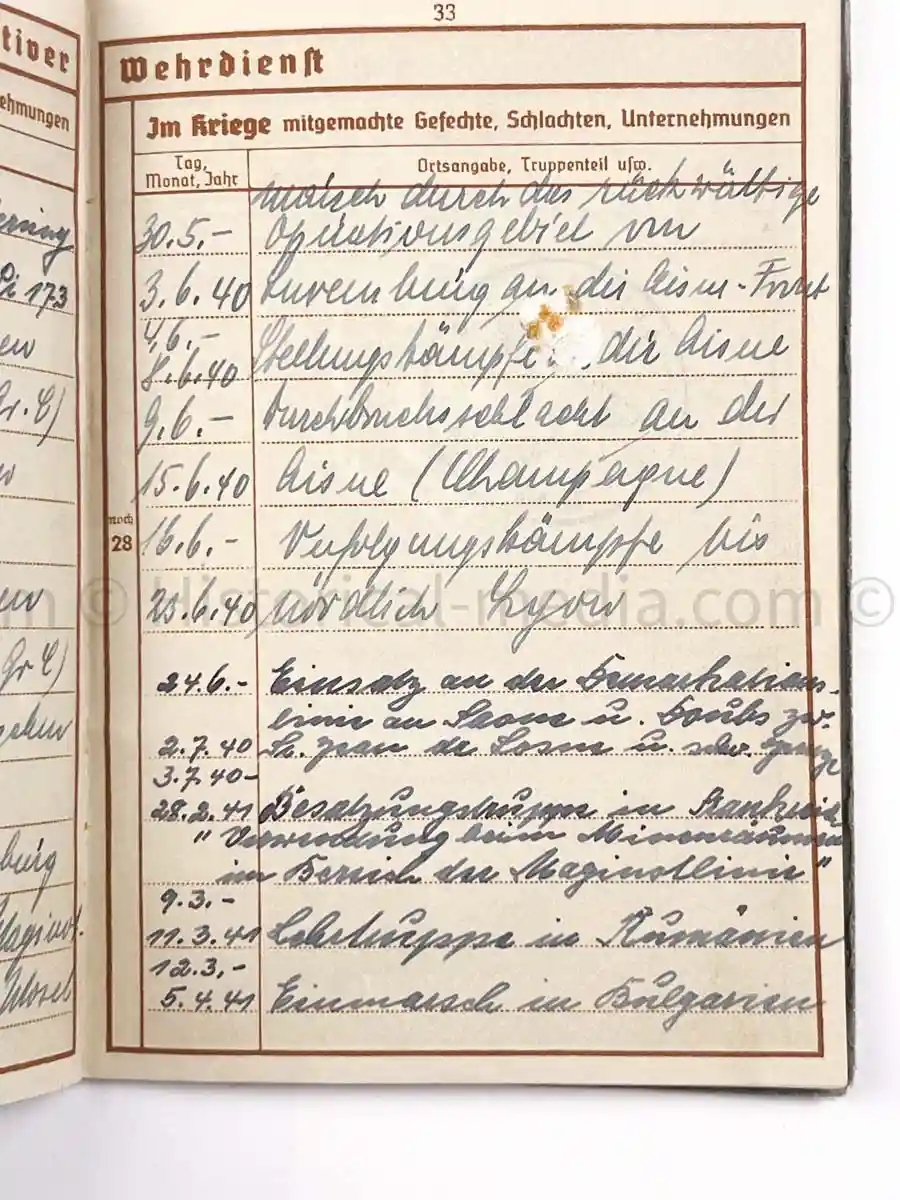 33
tiver
Wehrdienst
ehmungen
Im Kriege mitgemachte Gefechte, Schlachten, Unternehmungen
Tag, Monat, Jahr
Ortsangabe, Truppenteil usw.
Marsch durch das rückwältige
30.5.- Operationsgebiet von
3.6.40 Luxemburg an die Aisne-Front
4.6.-
8.6.40 Stellungskämpfe der Aisne
9.6.- Durchbruchsschlacht an der
15.6.40 Aisne (Champagne)
noch
28
16.6.- Verfolgungskämpfe bis
23.6.40 nördlich Lyon
24.6.- Einsatz an der Demarkations-
linie an Saone u. Doubs zw.
2.7.40 St. Jean de Losne u. schw. Grenze
3.7.40-
28.2.41 Besatzungstruppe in Frankreich
"Verwendung beim Minenräumen
im Bereich der Maginotlinie"
9.3.-
11.3.41 Lehrtruppe in Rumänien
12.3.-
5.4.41 Einmarsch in Bulgarien
173
burg
Maginot.
Mosel
© Historical-media.com ©